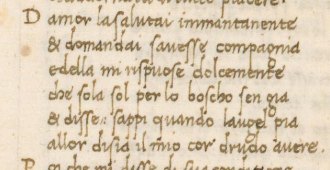 D amor la salutai inmantanente
& domandai savesse compagnia
et ella mi rispuose dolcemente
che sola sol per lo boscho sen gia
& disse: sappi quando laugel pia
allor disia il mio cor drudo avere.